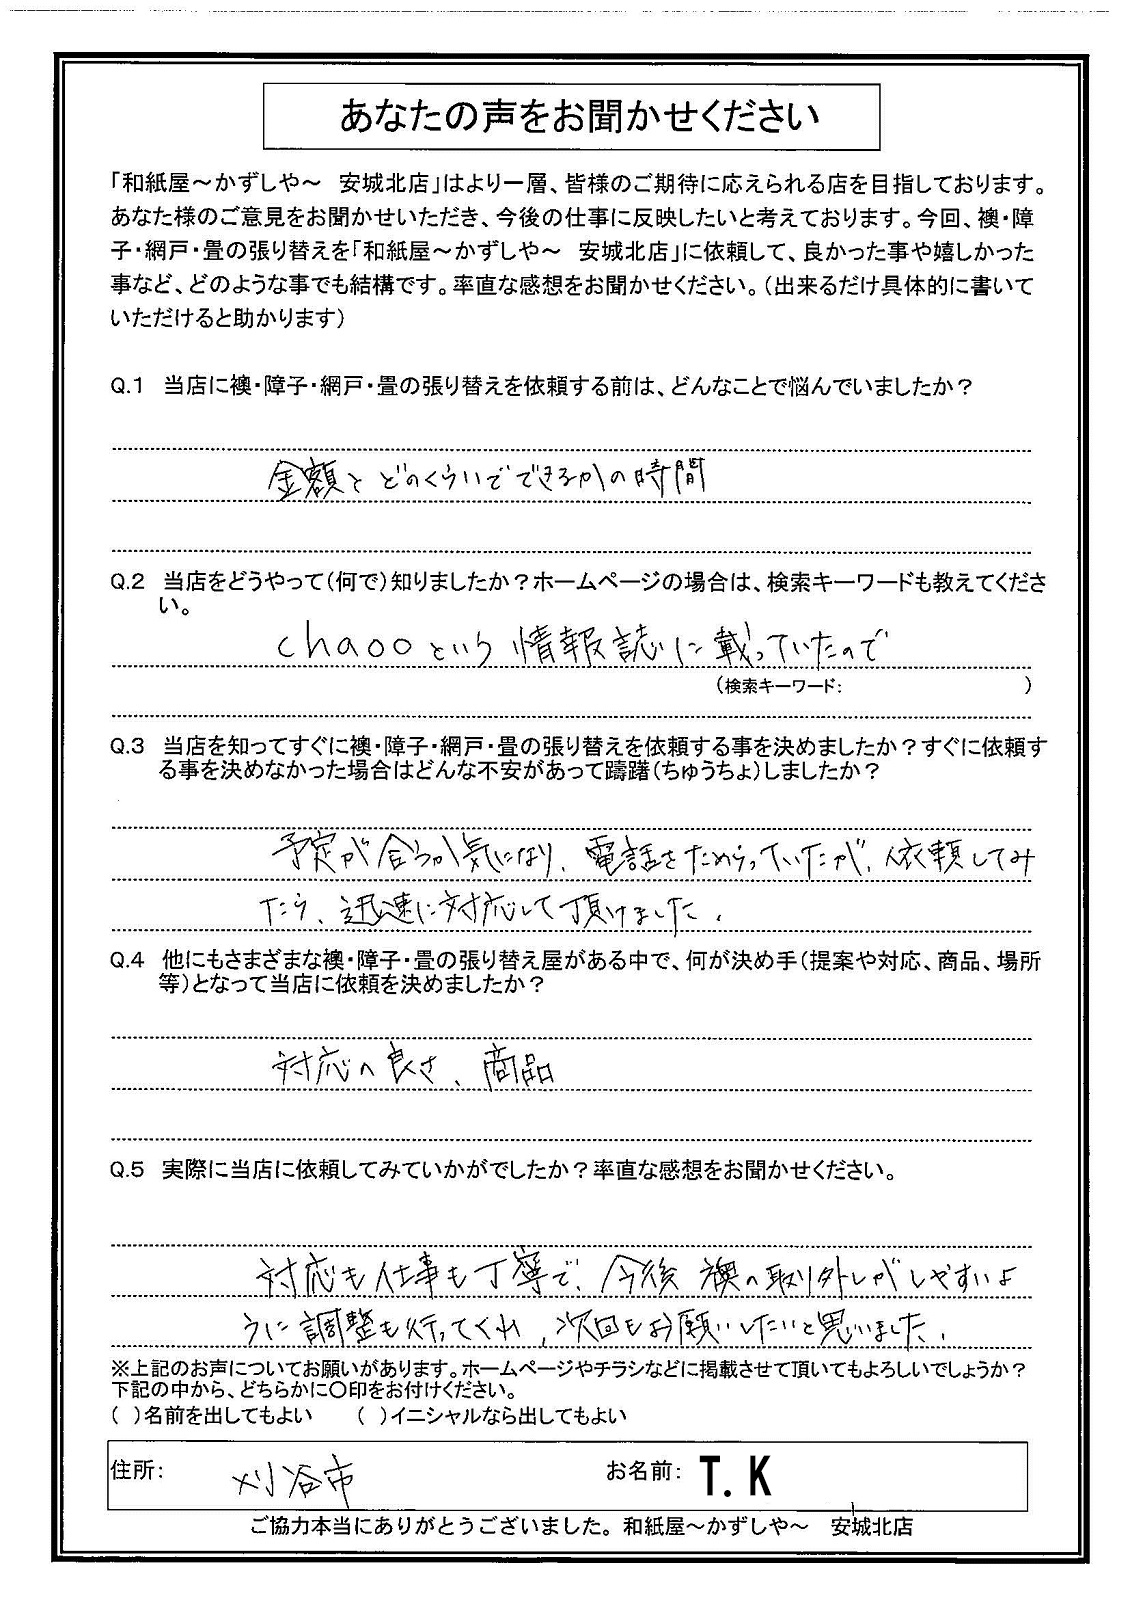 あなたの声をお聞かせください
「和紙屋～かずしや～　安城北店」はより一層、皆様のご期待に応えられる店を目指しております。
あなた様のご意見をお聞かせいただき、今後の仕事に反映したいと考えております。今回、襖・障
子・網戸・畳の張り替えを「和紙屋～かずしや～　安城北店」に依頼して、良かった事や嬉しかった
事など、どのような事でも結構です。率直な感想をお聞かせください。（出来るだけ具体的に書いて
いただけると助かります）
Q.1　当店に襖・障子・網戸・畳の張り替えを依頼する前は、どんなことで悩んでいましたか？
金額と どのくらいでできるかの時間
Q.2　当店をどうやって（何で）知りましたか？ホームページの場合は、検索キーワードも教えてくださ
い。
chaooという情報誌に載っていたので
（検索キーワード：　　　　　　　　　　）
Q.3　当店を知ってすぐに襖・障子・網戸・畳の張り替えを依頼する事を決めましたか？すぐに依頼す
る事を決めなかった場合はどんな不安があって躊躇（ちゅうちょ）しましたか？
予定が合うか気になり、電話をためらっていたが、依頼してみ
たら、迅速に対応して頂けました。
Q.4　他にもさまざまな襖・障子・畳の張り替え屋がある中で、何が決め手（提案や対応、商品、場所
等）となって当店に依頼を決めましたか？
対応の良さ、商品
Q.5　実際に当店に依頼してみていかがでしたか？率直な感想をお聞かせください。
対応も仕事も丁寧で、今後 襖の取り外しがしやすいよ
うに調整も行ってくれ、次回もお願いしたいと思いました。
※上記のお声についてお願いがあります。ホームページやチラシなどに掲載させて頂いてもよろしいでしょうか？
下記の中から、どちらかに〇印をお付けください。
（　）名前を出してもよい　　（　）イニシャルなら出してもよい
住所：　刈谷市　　お名前：　T.K
ご協力本当にありがとうございました。和紙屋～かずしや～　安城北店